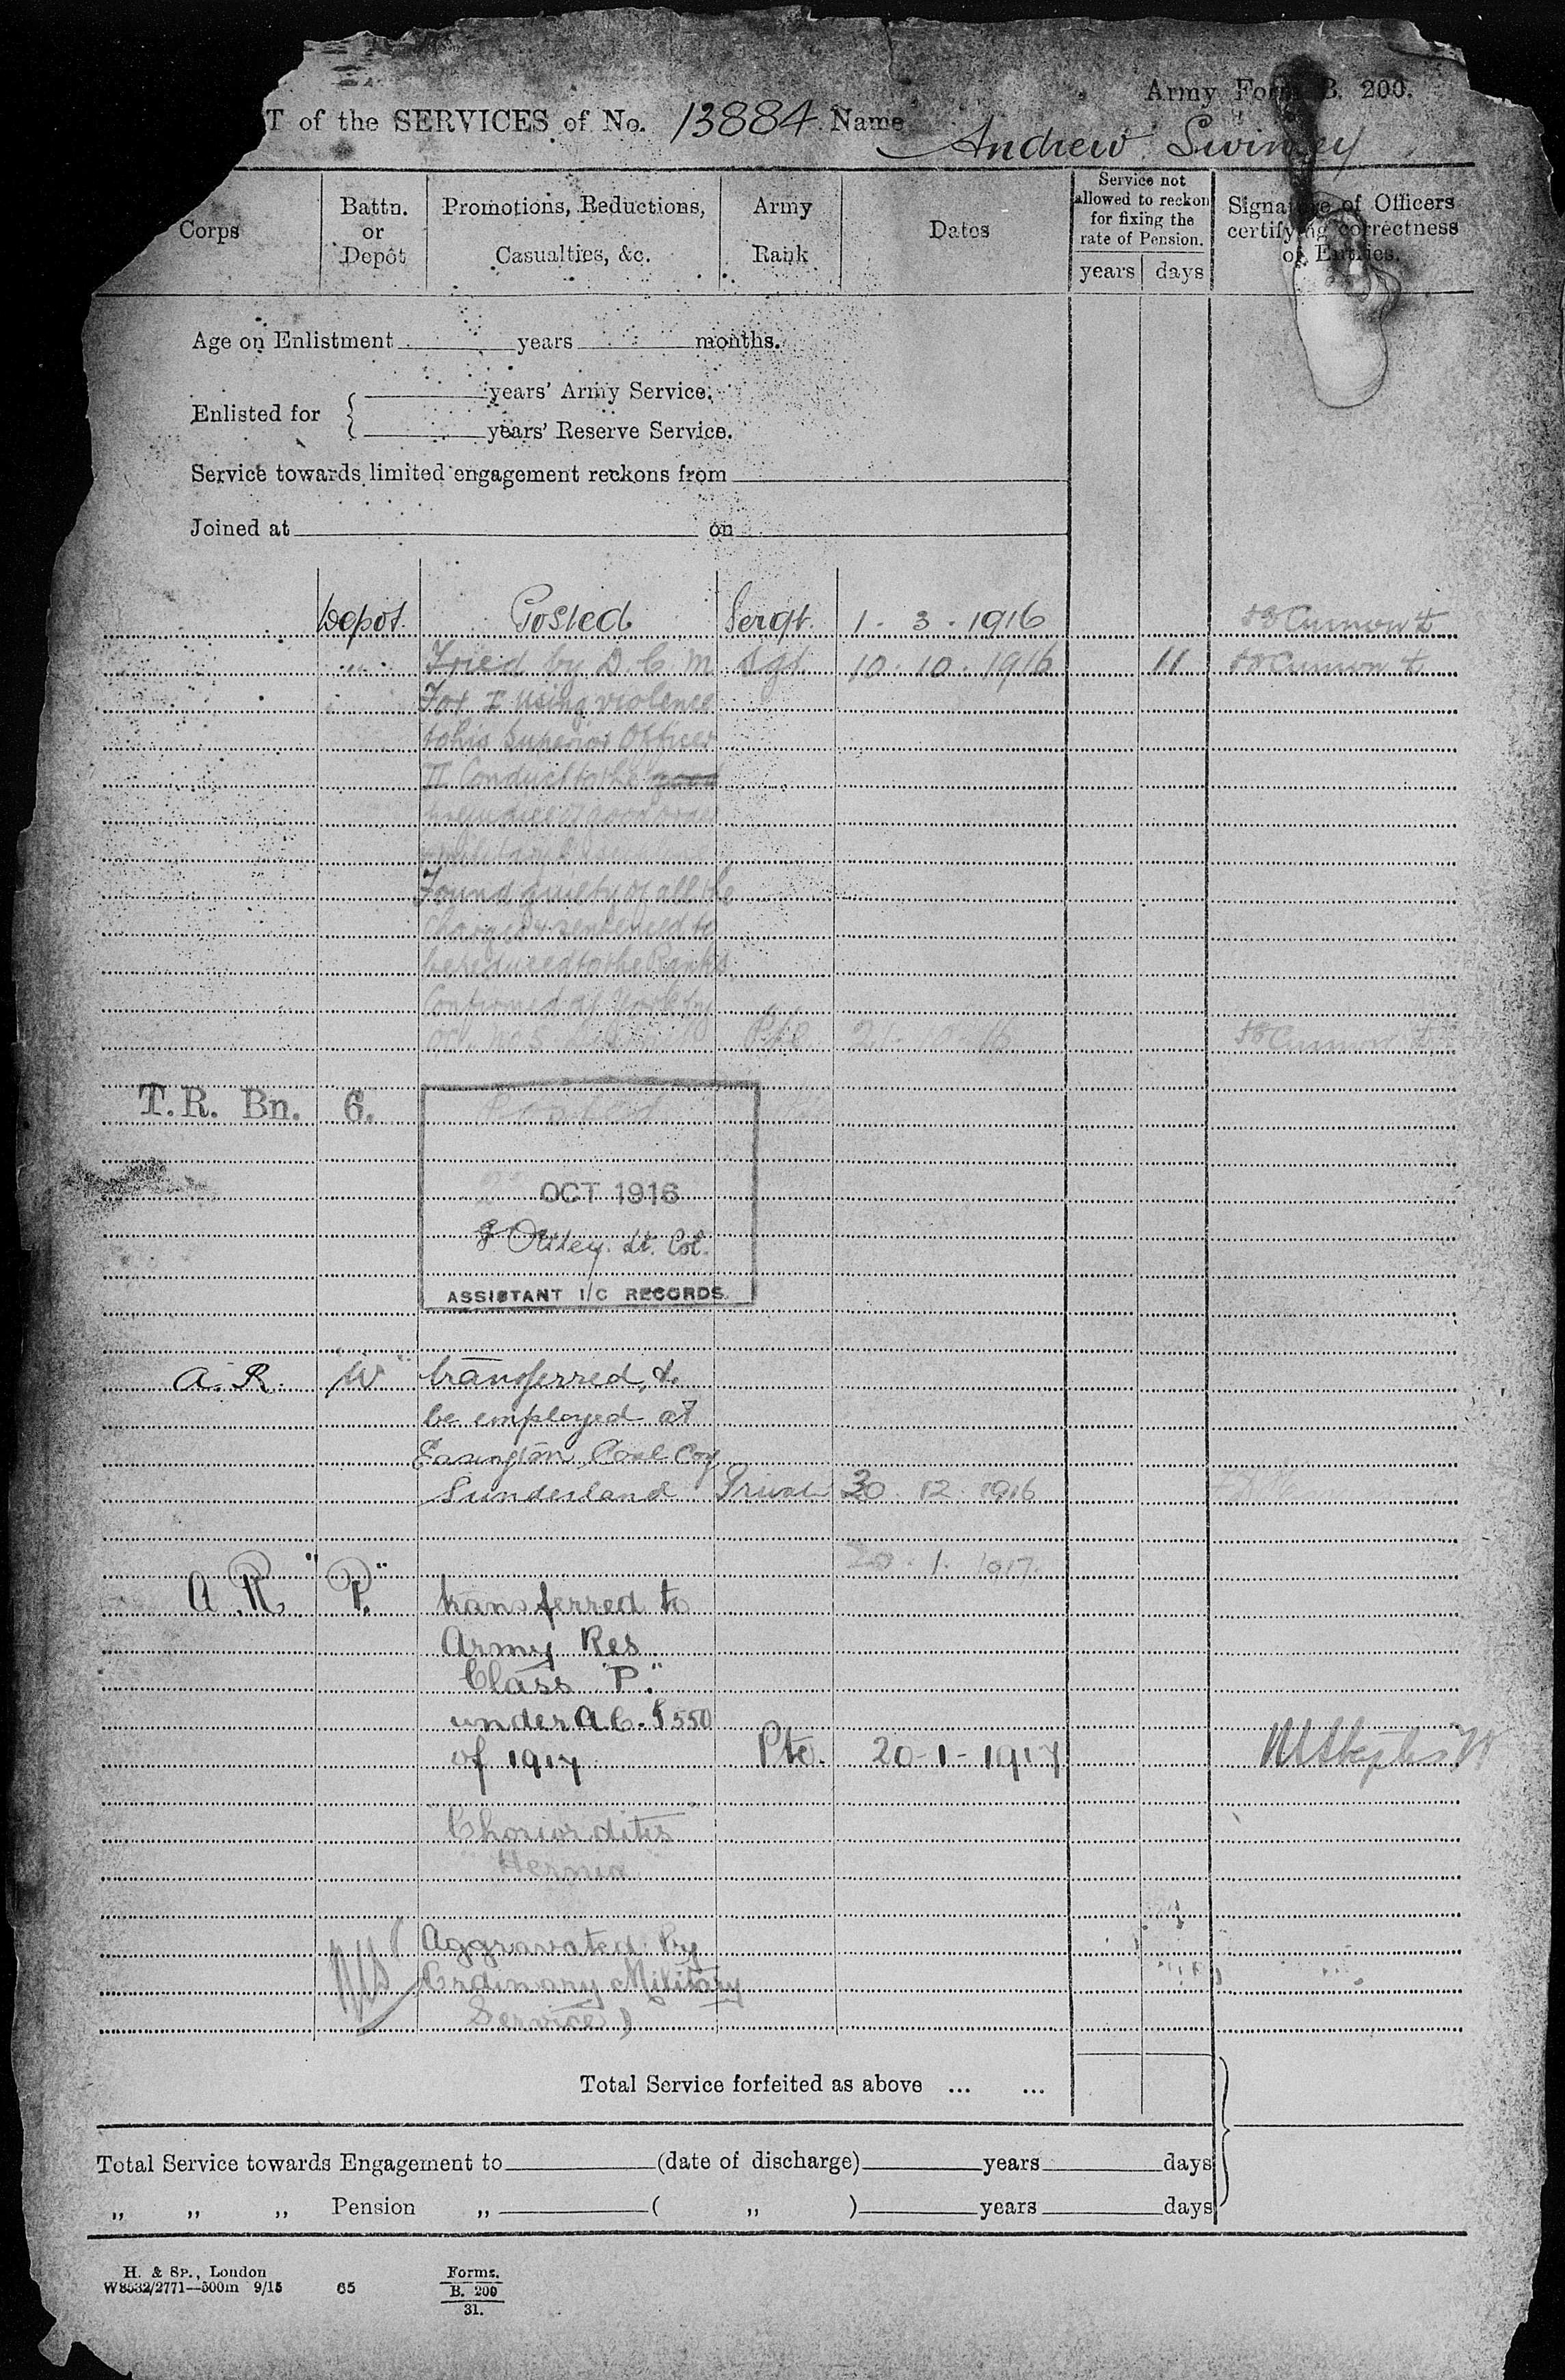 Army Form B. 200.
T of the SERVICES of No. 13884 Name Andrew Swinney
Corps
Battn. or Depôt
Promotions, Reductions, Casualties, &c.
Army Rank
Dates
Service not allowed to reckon for fixing the rate of Pension.
years days
Signature of Officers certifying correctness of Entries.
Age on Enlistment years months.
Enlisted for { years' Army Service.
years' Reserve Service.
Service towards limited engagement reckons from
Joined at on
Depot. Posted Sergt. 1 . 3 . 1916
" Tried by D. C. M Sgt. 10 . 10 . 1916 11
For I using violence
to his Superior Officer
II Conduct to the good
prejudice of good order
military discipline
Found guilty of all the
charges & sentenced to
be reduced to the Ranks
Confirmed at York by
Pte 21 - 10 - 16
T.R. Bn. 6. Posted
OCT 1916
Lt. Col.
ASSISTANT I/C RECORDS.
A. R. W" transferred, to
be employed at
Easington Coal Coy
Sunderland Private 20 . 12 . 1916
20 . 1 . 1917.
A. R. "P." transferred to
Army Res.
Class "P."
under A.C.I 550
of 1917 Pte. 20 - 1 - 1917
Hernia
Aggravated by
Ordinary Military
Service)
Total Service forfeited as above ... ...
Total Service towards Engagement to (date of discharge) years days
„ „ „ Pension „ ( „ ) years days
H. & SP., London
W8532/2771—500m 9/15 65
Forms.
B. 200
31.